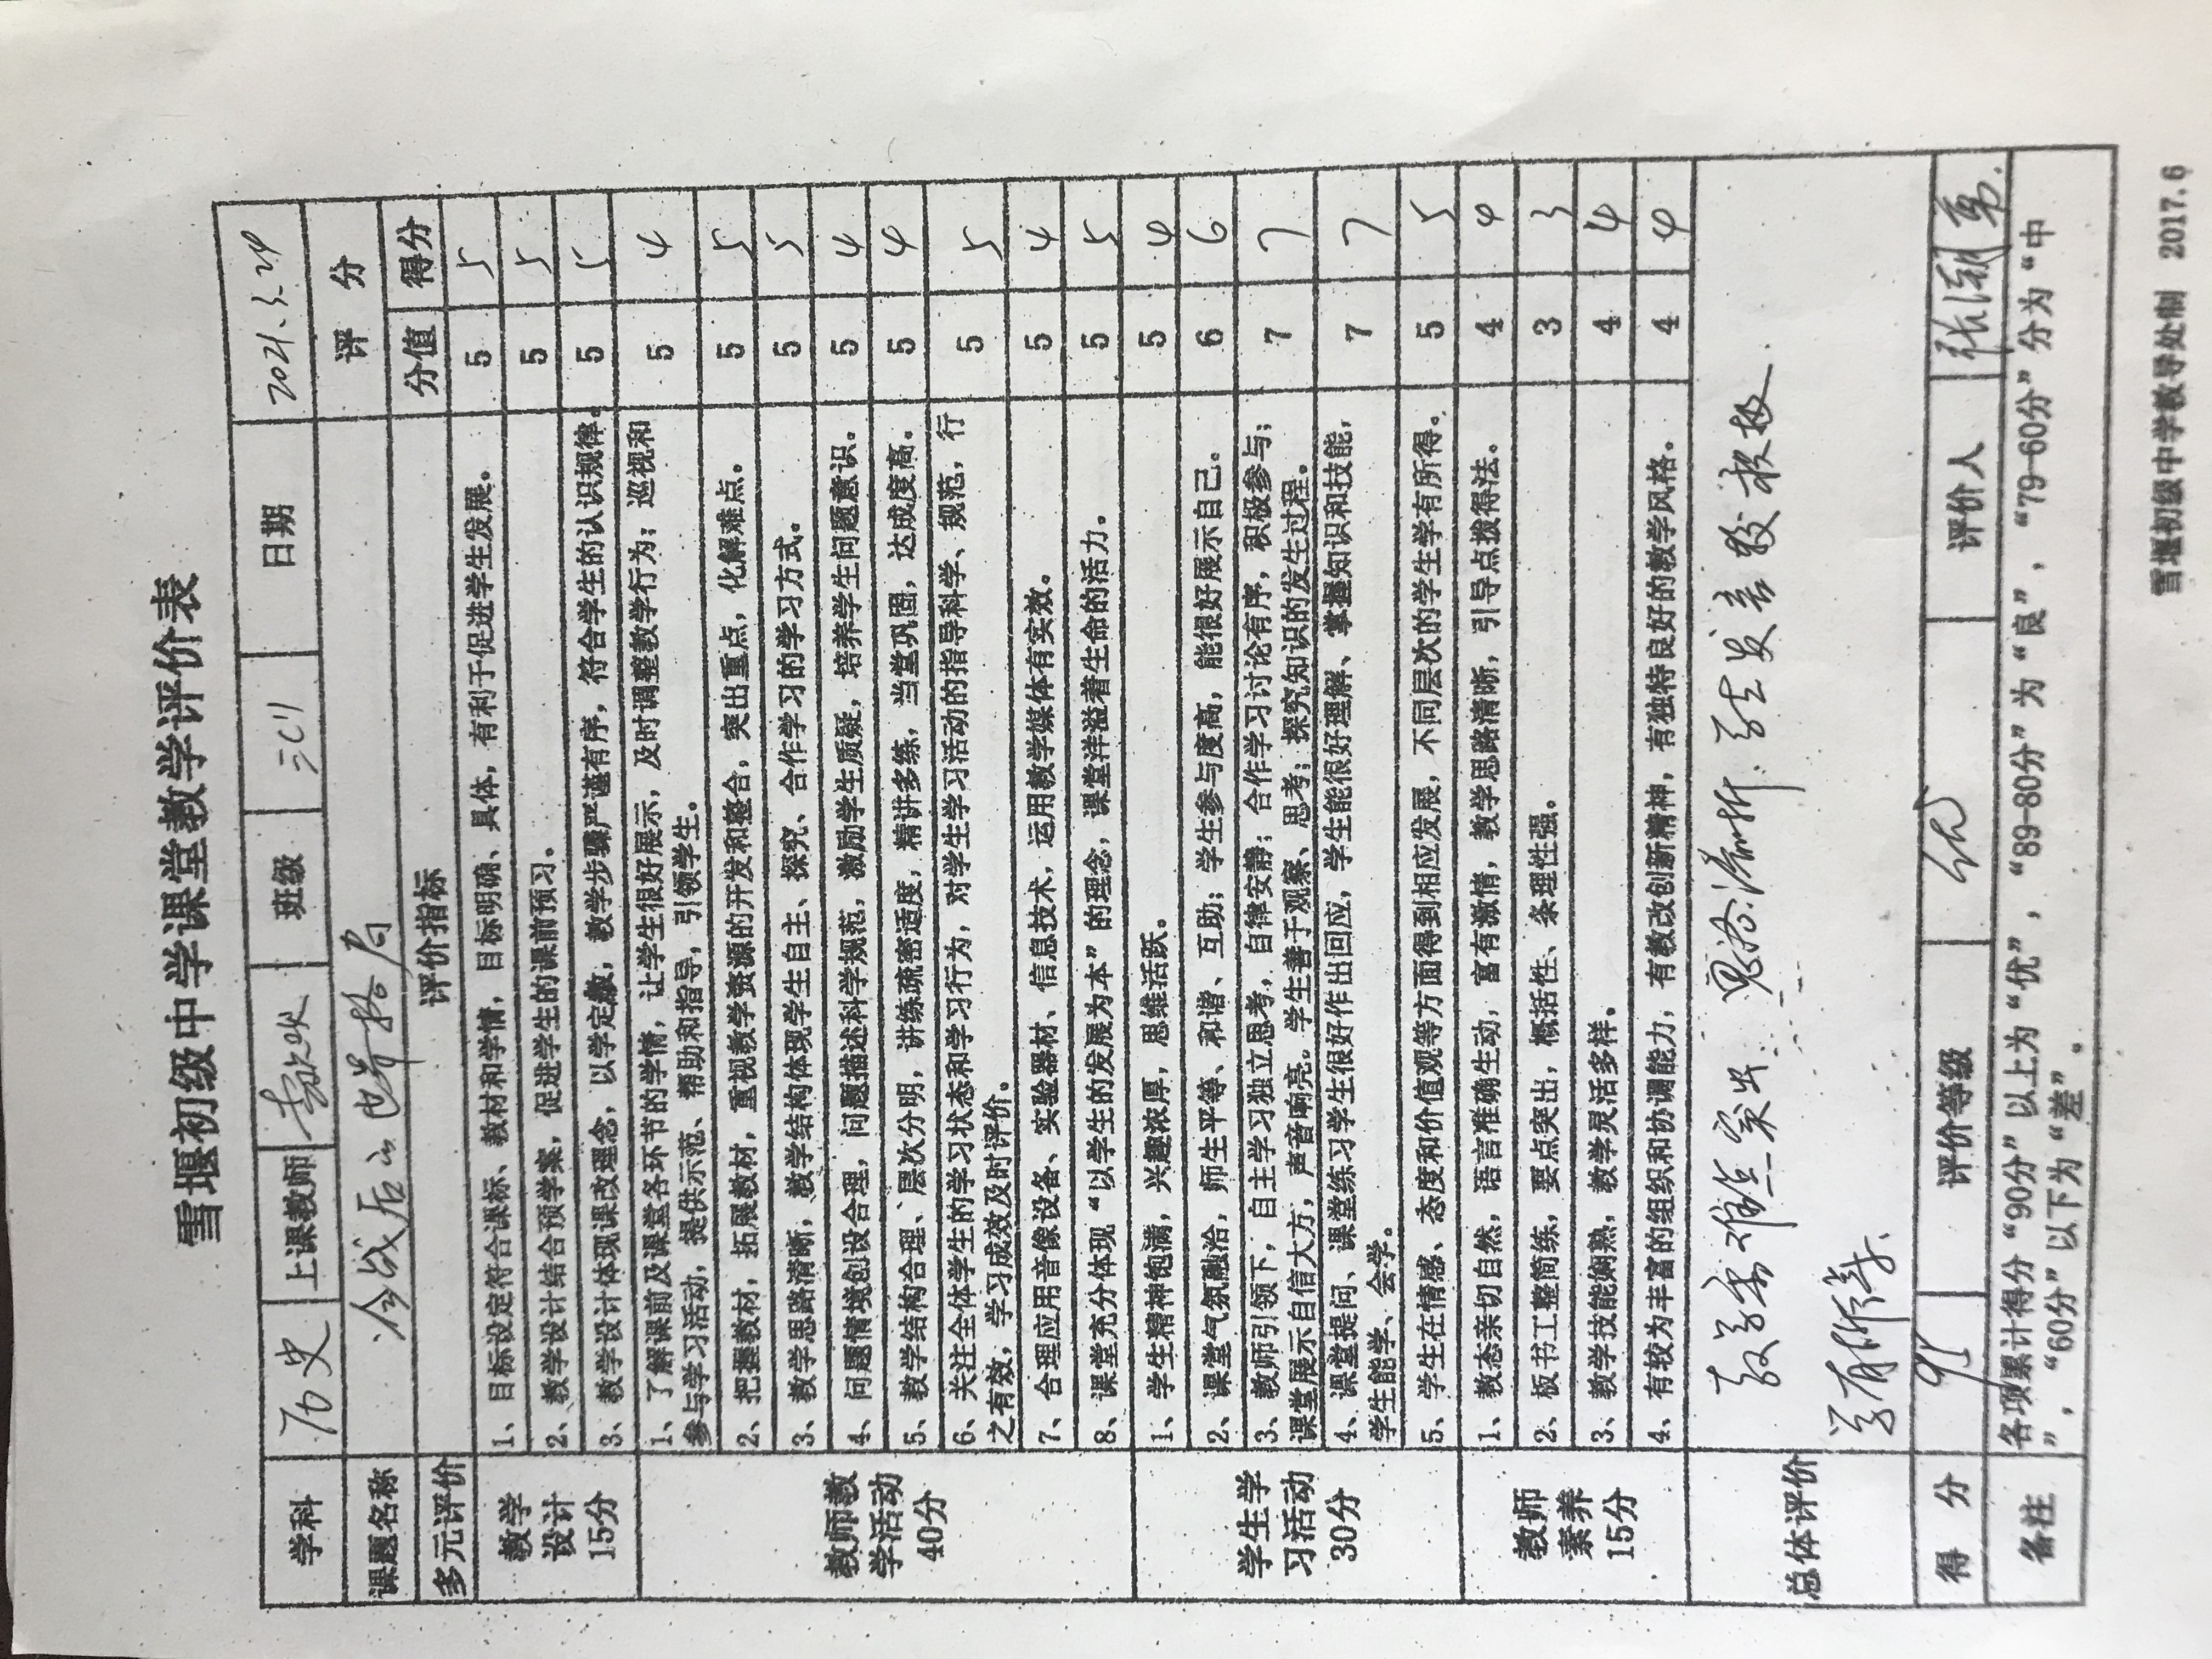 雪堰初级中学课堂教学评价表
学科 历史 上课教师 班级 三(1) 日期 2021.3.24
课题名称 冷战后的世界格局 评 分
多元评价 评价指标 分值 得分
教学设计 15分
1、目标设定符合课标、教材和学情,目标明确、具体,有利于促进学生发展。 5 5
2、教学设计结合预学案,促进学生的课前预习。 5 5
3、教学设计体现课改理念,以学定教,教学步骤严谨有序,符合学生的认识规律。 5 5
教师教学活动 40分
1、了解课前及课堂各环节的学情,让学生很好展示,及时调整教学行为;巡视和
参与学习活动,提供示范、帮助和指导,引领学生。 5 4
2、把握教材,拓展教材,重视教学资源的开发和整合,突出重点,化解难点。 5 5
3、教学思路清晰,教学结构体现学生自主、探究、合作学习的学习方式。 5 5
4、问题情境创设合理,问题描述科学规范,激励学生质疑,培养学生问题意识。 5 4
5、教学结构合理、层次分明,讲练疏密适度,精讲多练,当堂巩固,达成度高。 5 4
6、关注全体学生的学习状态和学习行为,对学生学习活动的指导科学、规范,行
之有效,学习成效及时评价。 5 5
7、合理应用音像设备、实验器材、信息技术,运用教学媒体有实效。 5 4
8、课堂充分体现“以学生的发展为本”的理念,课堂洋溢着生命的活力。 5 5
学生学习活动 30分
1、学生精神饱满,兴趣浓厚,思维活跃。 5 4
2、课堂气氛融洽,师生平等、和谐、互助;学生参与度高,能很好展示自己。 6 6
3、教师引领下,自主学习独立思考,自律安静;合作学习讨论有序,积极参与;
课堂展示自信大方,声音响亮。学生善于观察、思考;探究知识的发生过程。 7 7
4、课堂提问、课堂练习学生很好作出回应,学生能很好理解、掌握知识和技能,
学生能学、会学。 7 7
5、学生在情感、态度和价值观等方面得到相应发展,不同层次的学生学有所得。 5 5
教师素养 15分
1、教态亲切自然,语言准确生动,富有激情,教学思路清晰,引导点拨得法。 4 4
2、板书工整简练,要点突出,概括性、条理性强。 3 3
3、教学技能娴熟,教学灵活多样。 4 4
4、有较为丰富的组织和协调能力,有教改创新精神,有独特良好的教学风格。 4 4
总体评价 教学重难点突出,思路清晰,学生发言较积极.
学有所得.
得 分 95 评价等级 优 评价人
备注 各项累计得分“90分”以上为“优”,“89-80分”为“良”,“79-60分”分为“中
”,“60分”以下为“差”。
雪堰初级中学教导处制 2017.6